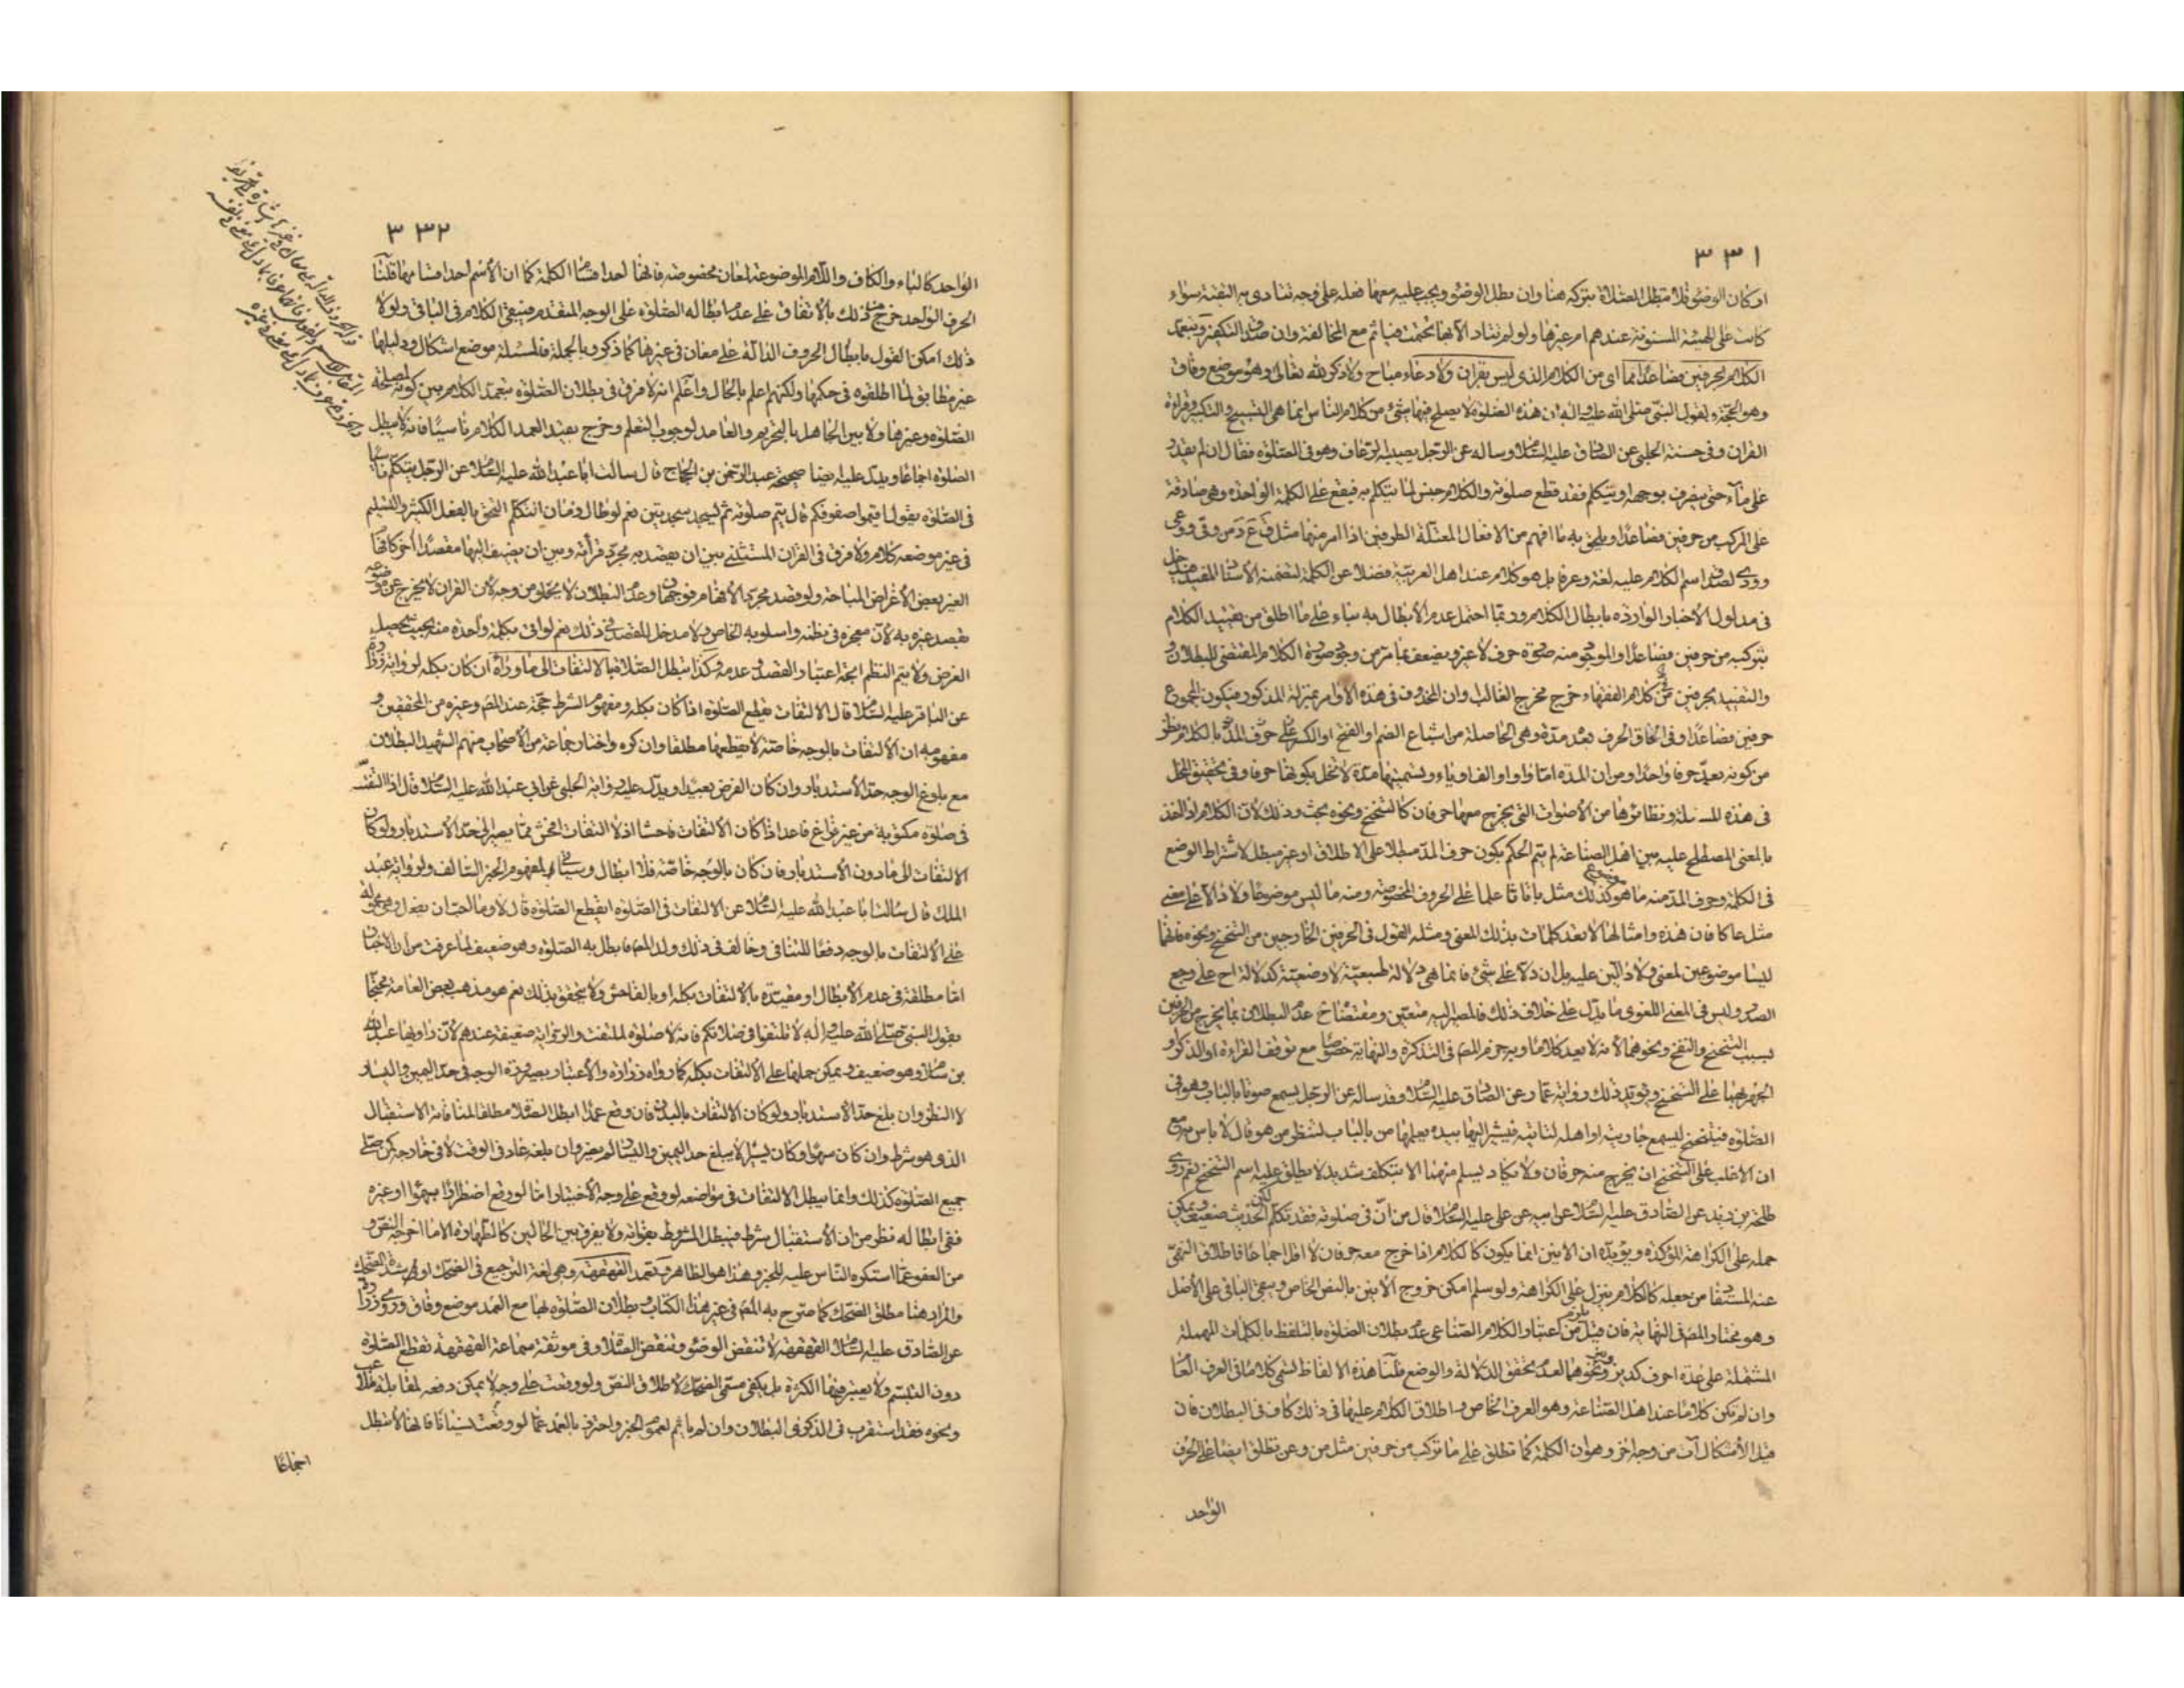 ٣٣١
او كان الوضوء فلا تبطل الصلاة بتركه هنا وان بطل الوضوء ويجب عليه معهما فعله على وجه تتادى به التقية سواء
كانت على الهيئة المسنونة عندهم ام غيرها ولو لم تتاد الا بها تحتمت فياثم مع المخالفة وان صدق التكفير وتعمد
الكلام بحرفين فصاعدا مما اى من الكلام الذى ليس بقران ولا دعاء مباح ولا ذكر لله تعالى وهو موضع وفاق
وهو الحجة ولقول النبى صلى الله عليه واله ان هذه الصلوة لا يصلح فيها شئ من كلام الناس انما هى التسبيح والتكبير وقراءة
القران وفى حسنة الحلبى عن الصادق عليه السلام وساله عن الرجل يصيبه الرعاف وهو فى الصلوة فقال ان لم يقدر
على ماء حتى ينصرف بوجهه او يتكلم فقد قطع صلوته والكلام جنس لما يتكلم به فيقع على الكلمة الواحدة وهى صادقة
على المركب من حرفين فصاعدا ويلحق به ما افهم من الافعال المعتلة الطرفين اذا امر منها مثل ق ع د من وقى ووعى
وودى لصدق اسم الكلام عليه لغة وعرفا بل هو كلام عند اهل العربية فضلا عن الكلمة لتضمنه الاسناد المفيد فيدخل
فى مدلول الاخبار الواردة بابطال الكلام وربما احتمل عدم الابطال به بناء على ما اطلق من تقييد الكلام
بتركبه من حرفين فصاعدا والموجود منه صورة حرف لا غير ويضعف بما مر من وجود صورة الكلام المقتضى للبطلان
والتقييد بحرفين فى كلام الفقهاء خرج مخرج الغالب وان المحذوف فى هذه الاوامر بمنزلة المذكور فيكون المجموع
حرفين فصاعدا وفى الحاق الحرف بعد مدة وهى الحاصلة من اشباع الضم او الفتح او الكسر على حرف المد بالكلام نظر
من كونه يعد حرفا واحدا ومن ان المدة اما واو او الف او ياء وتسميتها مدة لا تخل بكونها حرفا وفى تحقيق المحل
فى هذه المسئلة ونظائرها من الاصوات التى يخرج معها حرفان كالتنحنح ونحوه بحث وذلك لان الكلام ان اخذ
بالمعنى المصطلح عليه بين اهل الصناعة لم يتم الحكم بكون حرف المد مبطلا على الاطلاق او غير مبطل لاشتراط الوضع
فى الكلمة وحرف المد منه ما هو كذلك مثل باتا ثا علما على الحروف المخصوصة ومنه ما ليس موضوعا ولا دالا على معنى
مثل عا كا فان هذه وامثالها لا تعد كلمات بذلك المعنى ومثله القول فى الحرفين الخارجين من التنحنح ونحوه فانهما
ليسا موضوعين لمعنى ولا دالين عليه بل ان دلا على شئ فانما هى دلالة طبيعية لا وضعية كدلالة اح على وجع
الصدر وليس فى المعنى اللغوى ما يدل على خلاف ذلك فالمصير اليه متعين ومقتضاه ح عدم البطلان بما يخرج من الحرفين
بسبب التنحنح والنفخ ونحوهما لانه لا يعد كلاما وبه جزم المص فى التذكرة والنهاية خصوصا مع توقف القراءة او الذكر او
الجهر بهما على التنحنح ويؤيد ذلك رواية عمار عن الصادق عليه السلام وقد ساله عن الرجل يسمع صوتا بالباب وهو فى
الصلوة فيتنحنح ليسمع جاريته او اهله لتاتيه فيشير اليها بيده يعلمها من بالباب لتنظر من هو قال لا باس به مع
ان الاغلب على التنحنح ان يخرج منه حرفان ولا يكاد يسلم منهما الا بتكلف شديد لا يطلق عليه اسم التنحنح نعم روى
طلحة بن زيد عن الصادق عليه السلام عن ابيه عن على عليه السلام قال من ان فى صلوته فقد تكلم لكن الحديث ضعيف ويمكن
حمله على الكراهة المؤكدة ويؤيده ان الانين انما يكون كالكلام اذا خرج معه حرفان لا اقل اجماعا فاطلاق النهى
عنه المستفاد من جعله كالكلام ينزل على الكراهة ولو سلم امكن خروج الانين بالنص الخاص ويبقى الباقى على الاصل
وهو مختار المص فى النهاية فان قيل يلزم من اعتبار الكلام الصناعى عدم بطلان الصلوة بالتلفظ بالكلمات المهملة
المشتملة على عدة احرف كديز ونحوهما لعدم تحقق الدلالة والوضع قلنا هذه الالفاظ تسمى كلاما فى العرف العام
وان لم تكن كلاما عند اهل الصناعة وهو العرف الخاص واطلاق الكلام عليها فى ذلك كاف فى البطلان فان
قيل الاشكال آت من وجه اخر وهو ان الكلمة كما تطلق على ما تركب من حرفين مثل من وعن تطلق ايضا على الحرف
الواحد
٣٣٢
الواحد كالباء والكاف واللام الموضوعة لمعان مخصوصة فانها احد اقسام الكلمة كما ان الاسم احد اقسامها قلنا
الحرف الواحد خرج من ذلك بالاتفاق على عدم ابطاله الصلوة على الوجه المتقدم فيبقى الكلام فى الباقى ولولا
ذلك امكن القول بابطال الحروف الدالة على معان فى غيرها كما ذكر وبالجملة فالمسئلة موضع اشكال ودليلها
غير مطابق لما اطلقوه فى حكمها ولكنهم اعلم بالحال واعلم انه لا فرق فى بطلان الصلوة بتعمد الكلام بين كونه لمصلحة
الصلوة وغيرها ولا بين الجاهل بالتحريم والعامد لوجوب التعلم وخرج بقيد العمد الكلام ناسيا فانه لا يبطل
الصلوة اجماعا ويدل عليه ايضا صحيحة عبد الرحمن بن الحجاج قال سالت ابا عبد الله عليه السلام عن الرجل يتكلم ناسيا
فى الصلوة يقول اقيموا صفوفكم قال يتم صلوته ثم ليسجد سجدتين نعم لو طال زمان التكلم التحق بالفعل الكثير والتسليم
فى غير موضعه كلام ولا فرق فى القران المستثنى بين ان يقصد به مجرد قرائته وبين ان يضيف اليها مقصدا اخر كافهام
الغير بعض الاغراض المباحة ولو قصد مجرد الافهام فوجهان وعدم البطلان لا يخلو من وجه لان القران لا يخرج عن موضوعه
بقصد غيره به لان معجزه فى نظمه واسلوبه الخاص ولا مدخل للقصد فى ذلك نعم لو اتى بكلمة واحدة منه بحيث يحصل
الغرض ولا يتم النظم اتجه اعتبار القصد وعدمه وكذا تبطل الصلاة بالالتفات الى ما وراءه ان كان بكله لرواية زرارة
عن الباقر عليه السلام قال الالتفات يقطع الصلوة اذا كان بكله ومفهوم الشرط حجة عند المص وغيره من المحققين و
مفهومه ان الالتفات بالوجه خاصة لا يقطعها مطلقا وان كره واختار جماعة من الاصحاب منهم الشهيد البطلان
مع بلوغ الوجه حد الاستدبار وان كان الفرض بعيدا ويدل عليه رواية الحلبى عن ابى عبد الله عليه السلام قال اذا التفت
فى صلوة مكتوبة من غير فراغ فاعد اذا كان الالتفات فاحشا اذ لا التفات افحش مما يصير الى حد الاستدبار ولو كان
الالتفات الى ما دون الاستدبار فان كان بالوجه خاصة فلا ابطال لمفهوم الخبر السالف ولرواية عبد
الملك قال سالت ابا عبد الله عليه السلام عن الالتفات فى الصلوة ايقطع الصلوة قال لا وما احب ان يفعل وهى محمولة
على الالتفات بالوجه دفعا للتنافى وخالف فى ذلك ولد المص فابطل به الصلوة وهو ضعيف لما عرفت من ان الاخبار
اما مطلقة فى عدم الابطال او مقيدة بالالتفات بكله او بالفاحش ولا يتحقق بذلك نعم هو مذهب بعض العامة محتجا
بقول النبى صلى الله عليه واله لا تلتفتوا فى صلاتكم فانه لا صلوة لملتفت والرواية ضعيفة عندهم لان راويها عبد الله
بن سلام وهو ضعيف ويمكن حملها على الالتفات بكله كما رواه زرارة والاعتبار بصيرورة الوجه فى حد اليمين واليسار
لا النظر وان بلغ حد الاستدبار ولو كان الالتفات بالبدن فان وقع عمدا ابطل الصلاة مطلقا لمنافاته الاستقبال
الذى هو شرط وان كان سهوا وكان يسيرا لا يبلغ حد اليمين واليسار لم يضر وان بلغه عاد فى الوقت لا فى خارجه كمن صلى
جميع الصلوة كذلك وانما يبطل الالتفات فى مواضعه لو وقع على وجه الاختيار اما لو وقع اضطرارا سهوا او غيره
ففى ابطاله نظر من ان الاستقبال شرط فيبطل المشروط بفواته ولا يفرق بين الحالين كالطهارة الا ما اخرجه النص و
من العفو عما استكره الناس عليه للخبر وهذا هو الظاهر وتعمد القهقهة وهى لغة الترجيع فى الضحك او شدة الضحك
والمراد هنا مطلق الضحك كما صرح به المص فى غير هذا الكتاب وبطلان الصلوة بها مع العمد موضع وفاق وروى زرارة
عن الصادق عليه السلام القهقهة لا تنقض الوضوء وتنقض الصلاة وفى موثقة سماعة القهقهة تقطع الصلوة
دون التبسم ولا يعتبر فيها الكثرة بل يكفى مسمى الضحك لاطلاق النص ولو وقعت على وجه لا يمكن دفعه لمقابلة لاعب
ونحوه فقد استقرب فى الذكرى البطلان وان لم ياثم لعموم الخبر واحترز بالعمد عما لو وقعت نسيانا فانها لا تبطل
اجماعا